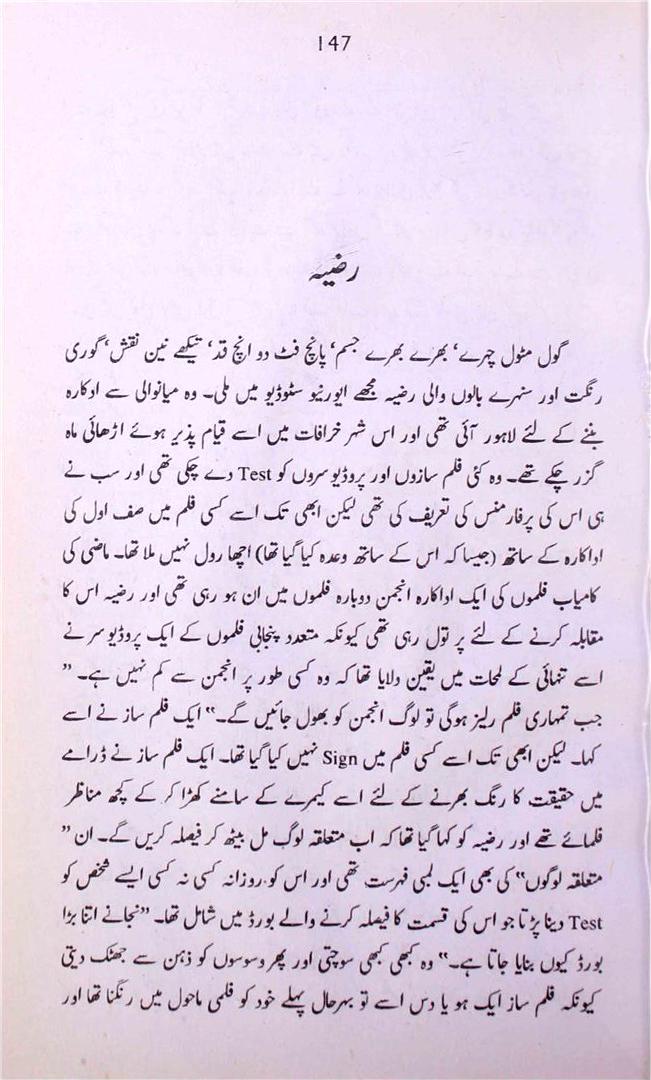 147
رضیہ
گول مٹول چہرے، بھرے بھرے جسم، پانچ فٹ دو انچ قد، تیکھے نین نقش، گوری
رنگت اور سنہرے بالوں والی رضیہ مجھے ایورنیو سٹوڈیو میں ملی۔ وہ میانوالی سے ادکارہ
بننے کے لئے لاہور آئی تھی اور اس شہر خرافات میں اسے قیام پذیر ہوئے اڑھائی ماہ
گزر چکے تھے۔ وہ کئی فلم سازوں اور پروڈیوسروں کو Test دے چکی تھی اور سب نے
ہی اس کی پرفارمنس کی تعریف کی تھی لیکن ابھی تک اسے کسی فلم میں صف اول کی
اداکارہ کے ساتھ (جیسا کہ اس کے ساتھ وعدہ کیا گیا تھا) اچھا رول نہیں ملا تھا۔ ماضی کی
کامیاب فلموں کی ایک اداکارہ انجمن دوبارہ فلموں میں ان ہو رہی تھی اور رضیہ اس کا
مقابلہ کرنے کے لئے پر تول رہی تھی کیونکہ متعدد پنجابی فلموں کے ایک پروڈیوسر نے
اسے تنہائی کے لمحات میں یقین دلایا تھا کہ وہ کسی طور پر انجمن سے کم نہیں ہے۔ ”
جب تمہاری فلم ریلیز ہوگی تو لوگ انجمن کو بھول جائیں گے۔“ ایک فلم ساز نے اسے
کہا۔ لیکن ابھی تک اسے کسی فلم میں Sign نہیں کیا گیا تھا۔ ایک فلم ساز نے ڈرامے
میں حقیقت کا رنگ بھرنے کے لئے اسے کیمرے کے سامنے کھڑا کر کے کچھ مناظر
فلمائے تھے اور رضیہ کو کہا گیا تھا کہ اب متعلقہ لوگ مل بیٹھ کر فیصلہ کریں گے۔ ان ”
متعلقہ لوگوں“ کی بھی ایک لمبی فہرست تھی اور اس کو روزانہ کسی نہ کسی ایسے شخص کو
Test دینا پڑتا جو اس کی قسمت کا فیصلہ کرنے والے بورڈ میں شامل تھا۔ ”نجانے اتنا بڑا
بورڈ کیوں بنایا جاتا ہے۔“ وہ کبھی کبھی سوچتی اور پھر وسوسوں کو ذہن سے جھٹک دیتی
کیونکہ فلم ساز ایک ہو یا دس اسے تو بہرحال پہلے خود کو فلمی ماحول میں رنگنا تھا اور